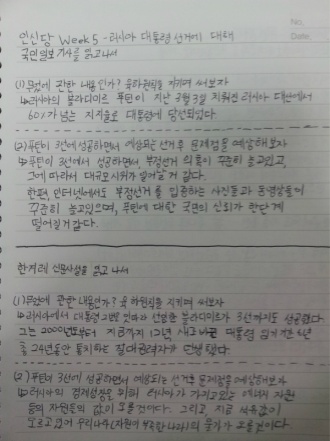 No.
Date
인신당 Week 5 - 러시아 대통령 선거에 대해
국민일보 기사를 읽고나서
(1) 무엇에 관한 내용인가? 육하원칙을 지키며 써보자
↳ 러시아의 블라디미르 푸틴이 지난 3월 3일 치뤄진 러시아 대선에서
60%가 넘는 지지율로 대통령에 당선되었다
(2) 푸틴이 3선에 성공하면서 예상되는 선거후 문제점을 예상해보자
↳ 푸틴이 3선에서 성공하면서, 부정선거 의혹이 꾸준히 늘고있고,
그에 따라서 대규모시위가 일어날 거 같다.
한편, 인터넷에서도 부정선거를 입증하는 사진들과 동영상들이
꾸준히 늘고있으며, 푸틴에 대한 국민의 신뢰가 한단계
떨어질거같다.
한겨레 신문사설을 읽고 나서
(1) 무엇에 관한 내용인가? 육하원칙을 지키며 써보자
↳ 러시아에서 대통령 2번을 연임한 블라디미르가 3선까지도 성공했다
그는 2000년도부터 지금까지 12년, 새로 대통령 임기
총 24년동안 통치하는 절대권력자가 탄생했다
(2) 푸틴이 3선에 성공하면서 예상되는 선거후 문제점을 예상해보자
↳ 러시아의 경제성장을 위해 러시아가 가지고있는 에너지 자원
등의 자원들의 값이 오를것이다. 그리고, 지금 석유값이
오르고있어 우리나라(자원이 부족한 나라)의 물가가 오를것이다